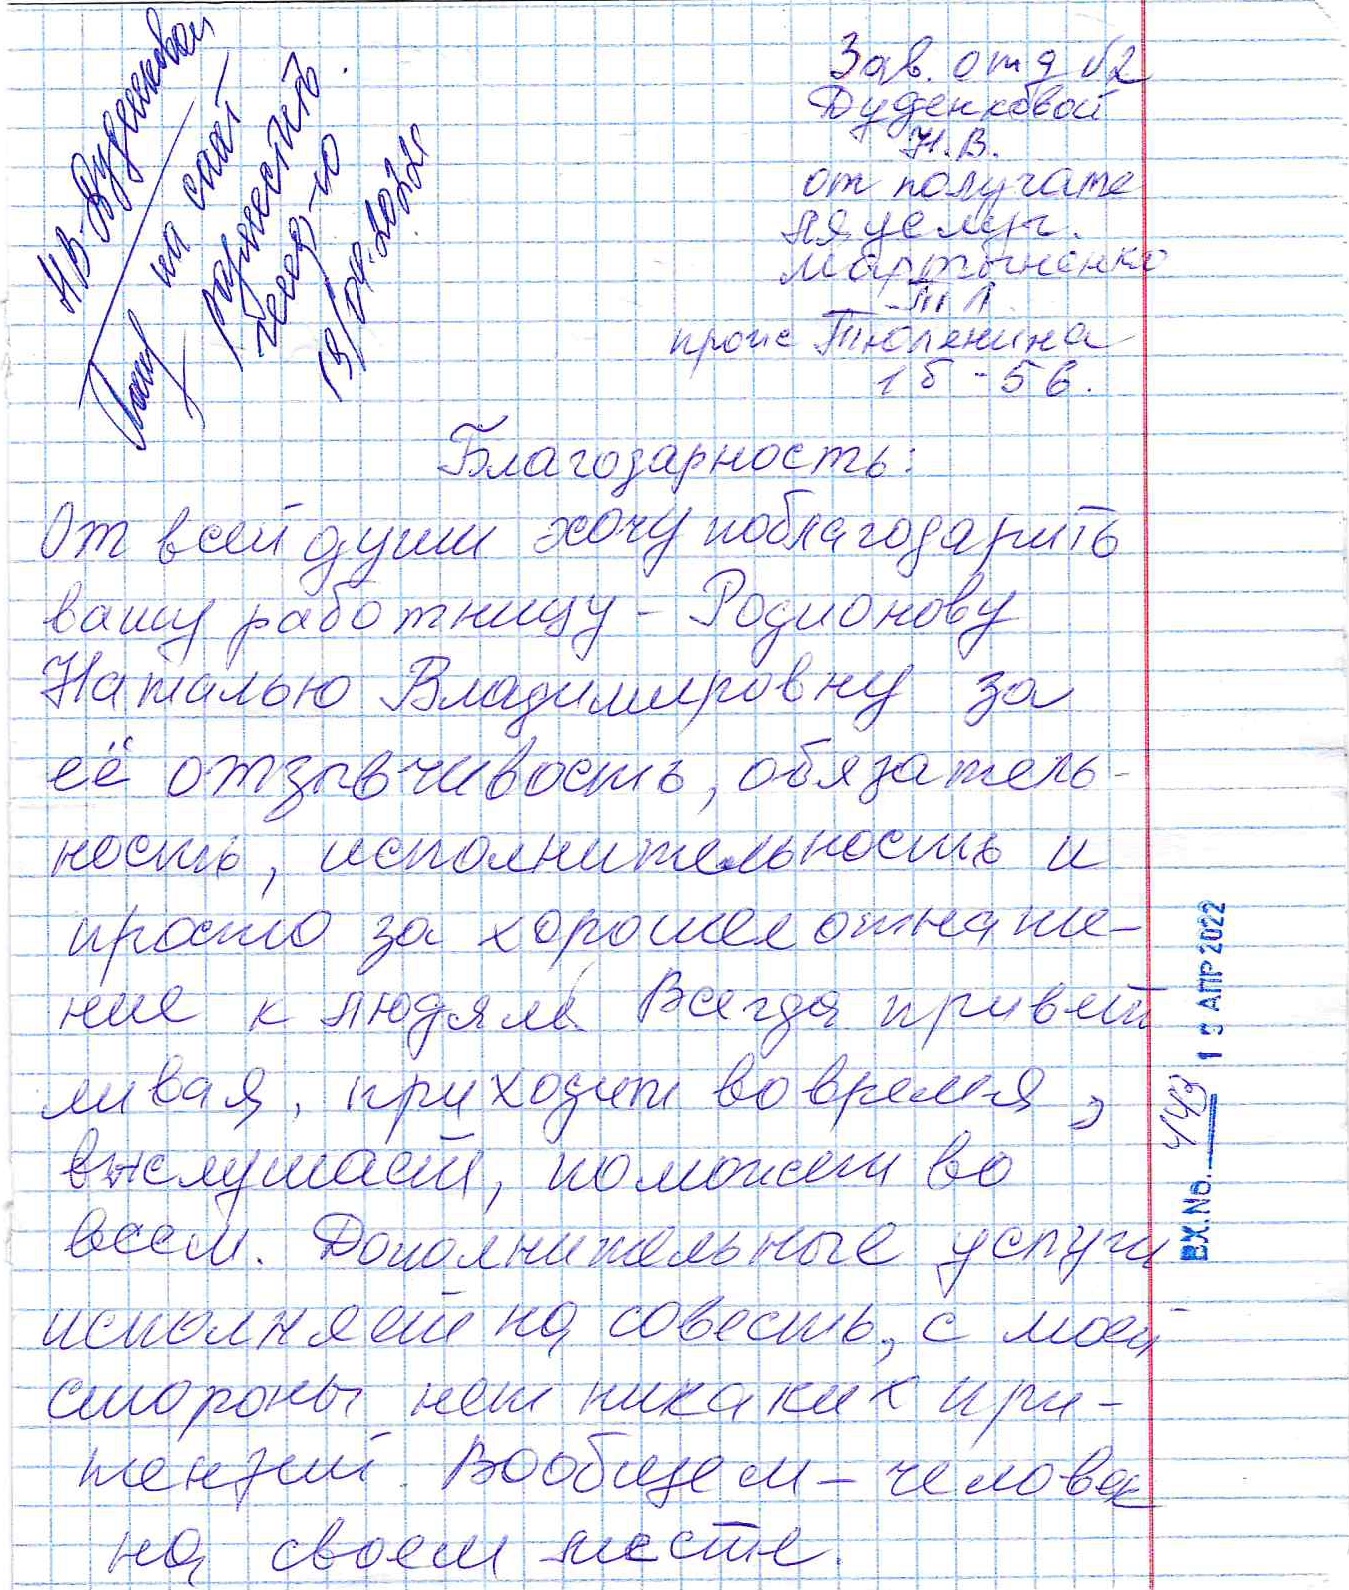 Н.В. Дуденковой
на сайт
разместить
19/04.2022г
Зав. отд №2
Дуденковой
Н.В.
от получате
ля услуг.
Мартыненко
Т Л
просп Тюленина
15-56.
Благодарность:
От всей души хочу поблагодарить
вашу работницу - Родионову
Наталью Владимировну за
её отзывчивость, обязатель-
ность, исполнительность и
просто за хорошее отнаше-
ние к людям. Всегда привет
ливая, приходит вовремя,
выслушает, поможет во
всем. Дополнительные услуги
исполняет на совесть, с моей
стороны нет никаких при-
тензий. Вообщем - человек
на своем месте.
ВХ.No. 443 19 АПР 2022